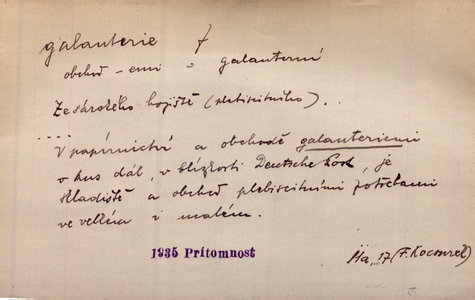 galanterie f
obchod -emi = galanterní
Ze sárského bojiště (plebiscitního) . .
. . . .
V papírnictví a obchodě galanteriemi
o kus dál, v blízkosti Deutsche Front, je
skladiště a obchod plebiscitními potřebami
ve velkém i malém.
1935 Prítomnost
IIa, 17 (F. Kocourek)